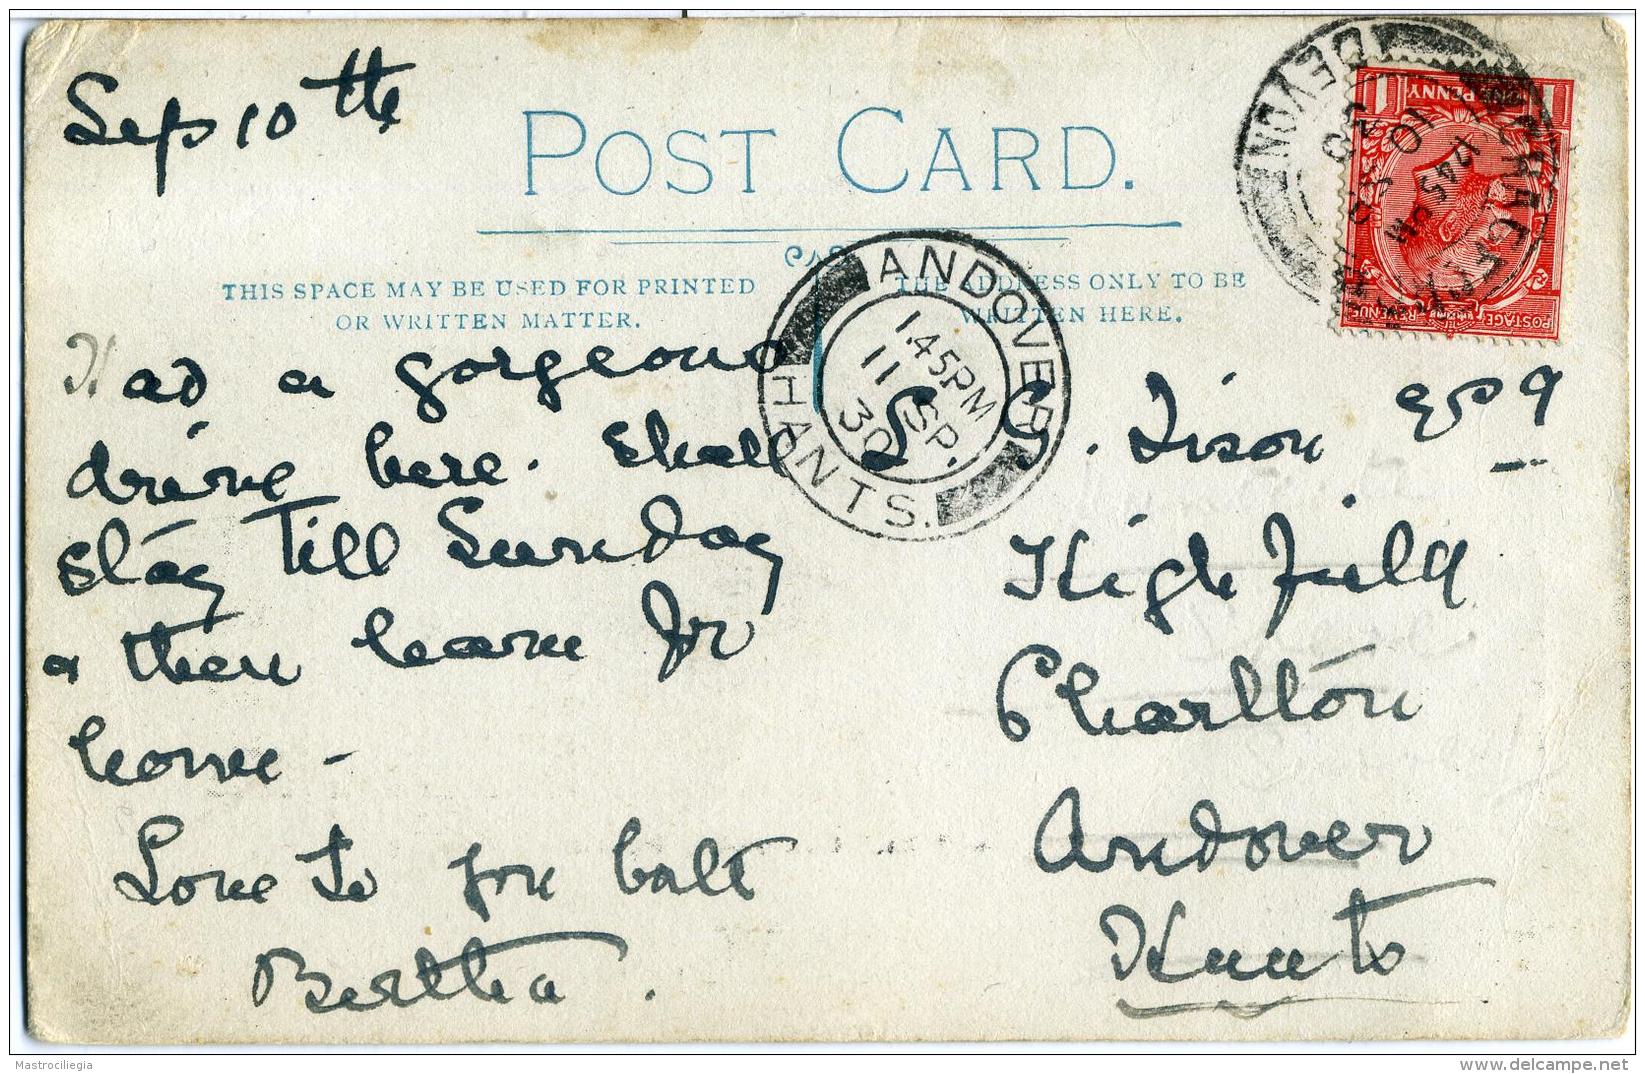 Sep 10th
POST CARD.
THIS SPACE MAY BE USED FOR PRINTED
OR WRITTEN MATTER.
THE ADDRESS ONLY TO BE
WRITTEN HERE.
Had a gorgeous
drive here. Shall
stay till Sunday
& then leave for
home -
Love to you both
Bertha.
S. G. Tison Esq
Highfield
Charlton
Andover
Hants
ANDOVER
HANTS.
1.45 PM
11 SP.
30
DEVON
ONE PENNY
POSTAGE
REVENUE
Mastrociliegia
delcampe.net